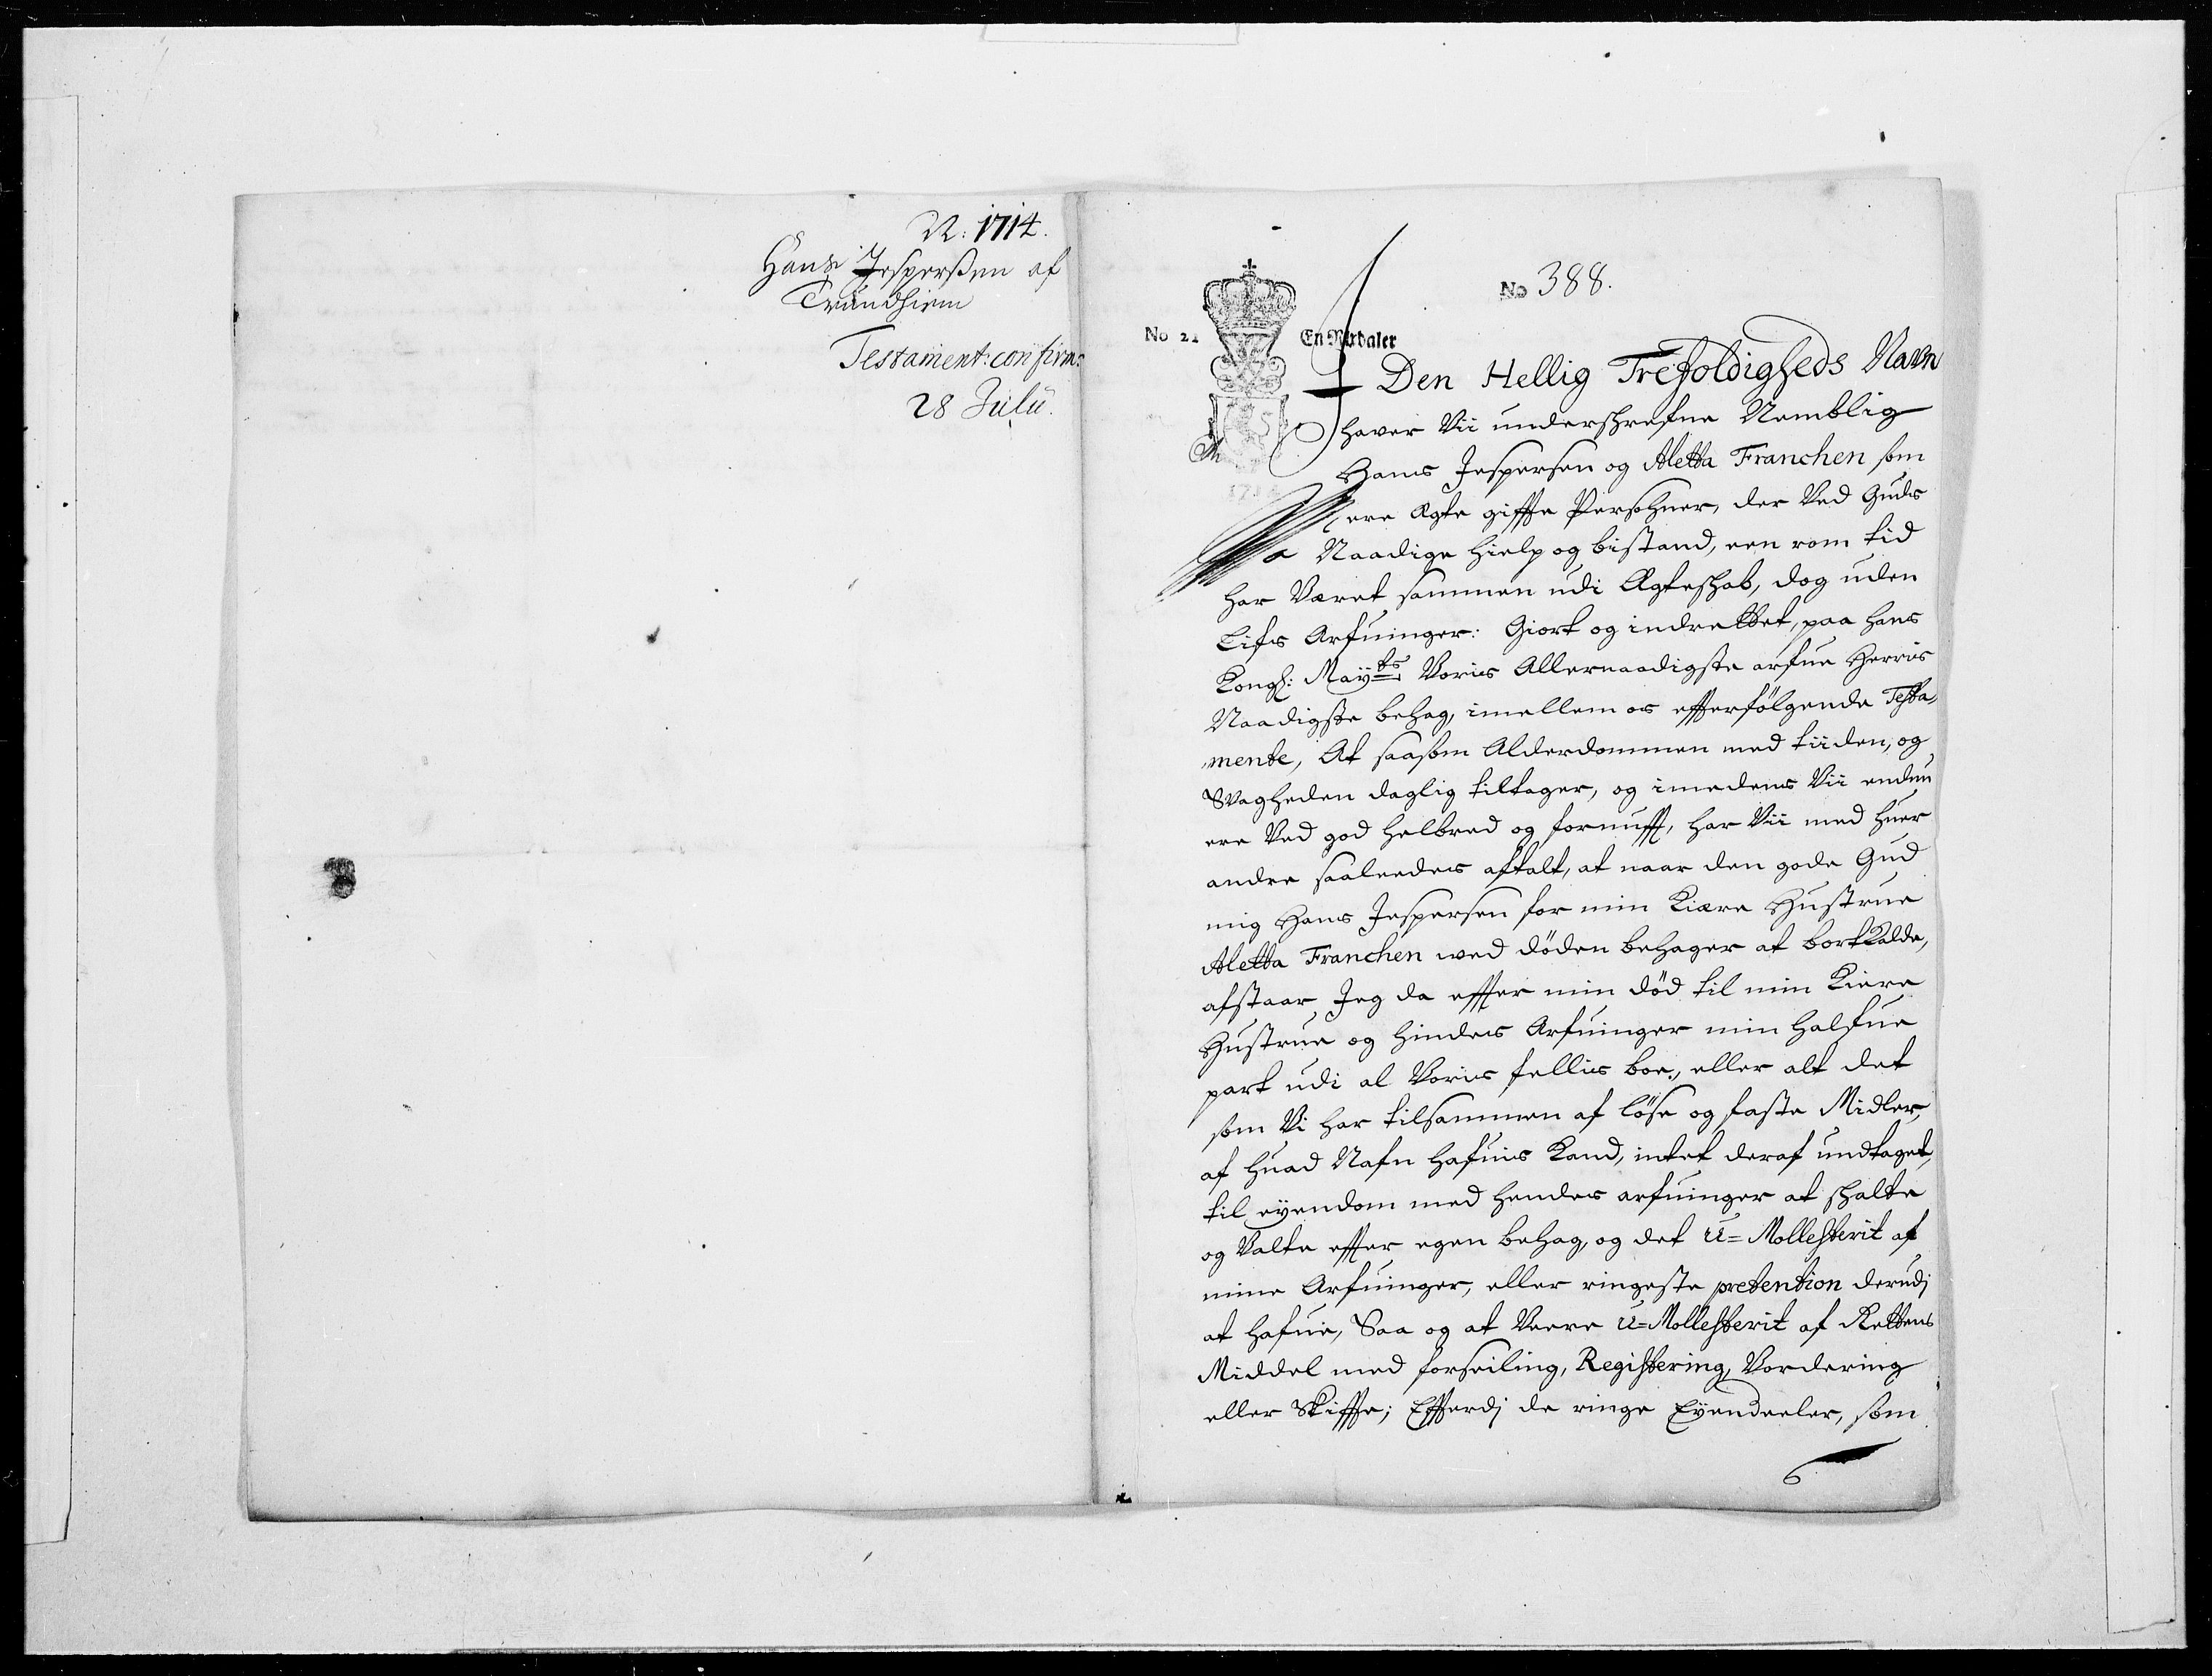 N: 1714.
Hans Jesperßen af
Trundhiem
Testament: confirm:
28 Julii.
No 388.
No 21 En Rixdaler
I Den Hellig Trefoldigheds Navn
haver Vii underschrefne Nemblig
Hans Jespersen og Aletta Franchen som
1714
ere Ægte giffte Persohner, der Ved Guds
Naadige hielp og bistand, een rom tid
har Været sammen udi Ægteschab, dog uden
Lifs Arfuinger: Giort og indrettet, paa hans
Kongl: Mayts Voris Allernaadigste arfue Herris
Naadigste behag, imellem os effterfölgende Testa-
mente, At saasom Alderdommen med tiiden, og
Svagheden daglig tiltager, og imedens Vii endnu
ere Ved god helbred og fornufft, har Vii med huer
andre saaleedes aftalt, at naar den gode Gud
mig Hans Jespersen for min Kiære Hustrue
Aletta Franchen wed döden behager at bortkalde,
afstaar Jeg da effter min död til min Kiere
Hustrue og hindes Arfuinger min halfue
part udi al Voris fellis boe, eller alt det
som Vi har tilsammen af löse og faste Midler,
af huad Nafn hafuis Kand, intet deraf undtaget,
til eyendom med hendes arfuinger at schalte
og Valte effter egen behag, og det U=Mollesterit af
mine Arfuinger, eller ringeste pretention derudj
at hafue, Saa og at Veere U=Mollesterit af Rettens
Middel med forseiling, Registering, Vordering
eller Skiffte; Effterdj de ringe Eyendeeler, som